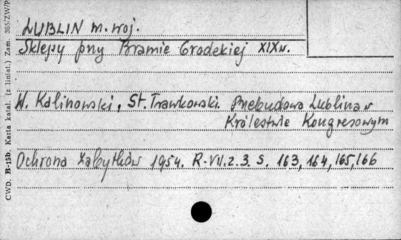 LUBLIN m. woj.
Sklepy przy Bramie Grodzkiej XIX w.
W. Kalinowski, St. Trawkowski. Przebudowa Lublina w
Królestwie Kongresowym
Ochrona Zabytków 1954. R-VII. z. 3. s. 163, 164, 165, 166
CWD. B-15b. Karta katal. (z liniat.) Zam.